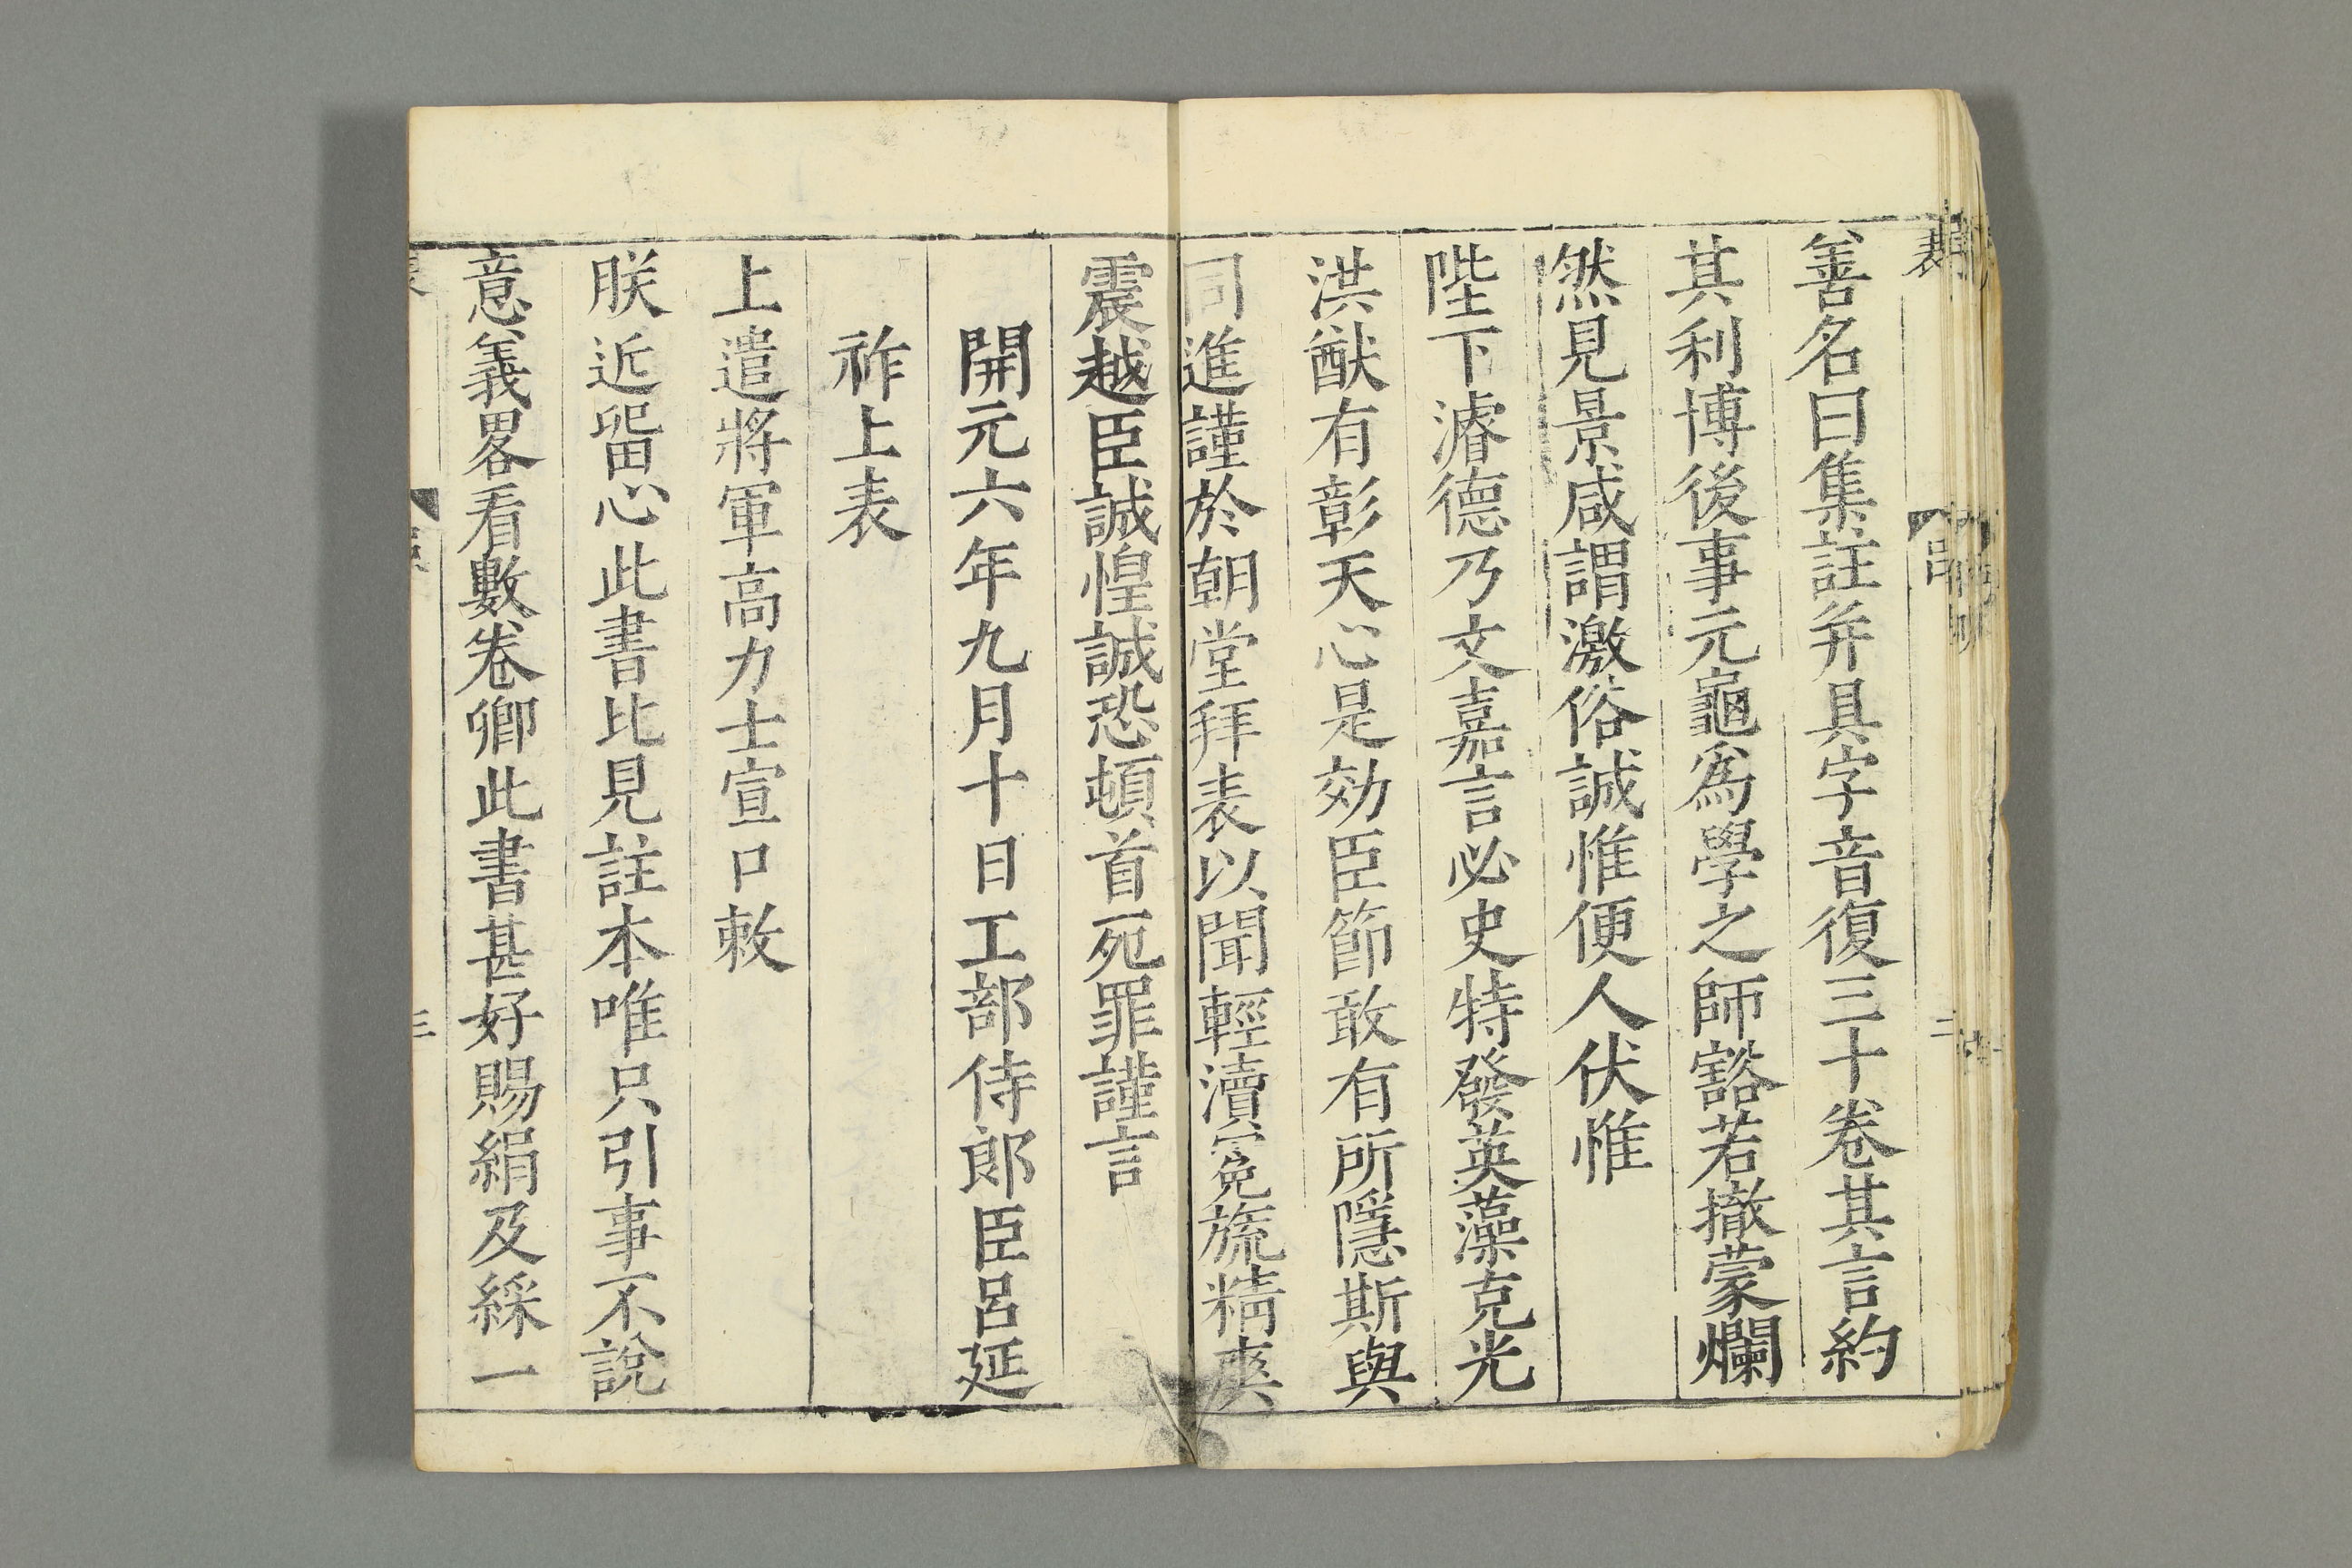 善名曰集註并具字音復三十卷其言約
其利博後事元龜爲學之師豁若撤蒙爛
然見景咸謂激俗誠惟便人伏惟
陛下濬德乃文嘉言必史特發英藻克光
洪猷有彰天心是効臣節敢有所隱斯與
同進謹於朝堂拜表以聞輕瀆冕旒精爽
震越臣誠惶誠恐頓首死罪謹言
開元六年九月十日工部侍郎臣呂延
祚上表
上遣將軍高力士宣口敕
朕近留心此書比見註本唯只引事不說
意義畧看數卷卿此書甚好賜絹及綵一